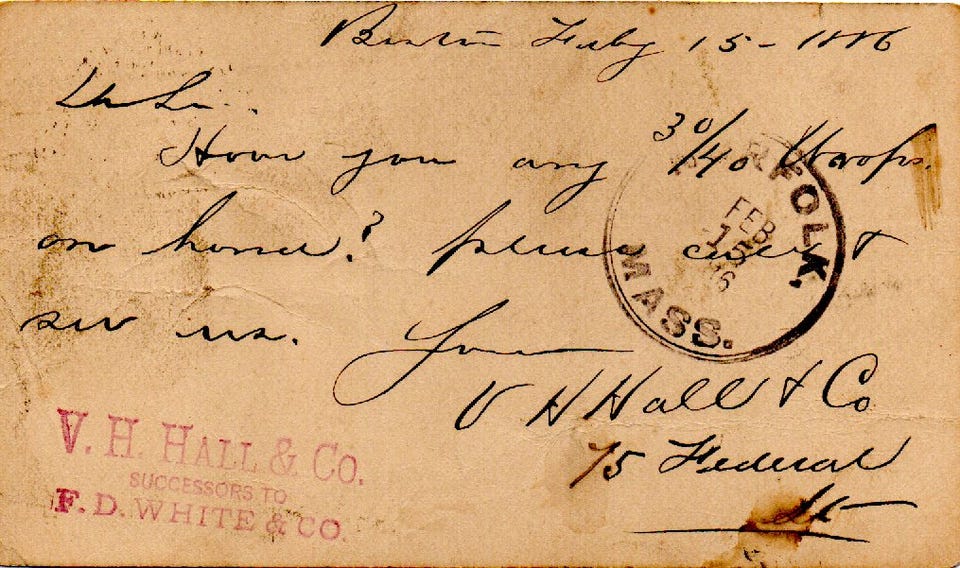 Boston Feby 15 - 1886
Dr Sir.
Have you any 30/40 Warps.
on hand? please call &
see us. Yours
V H Hall & Co
75 Federal
St
NORFOLK.
FEB
15
86
MASS.
V. H. HALL & CO.
SUCCESSORS TO
F. D. WHITE & CO.